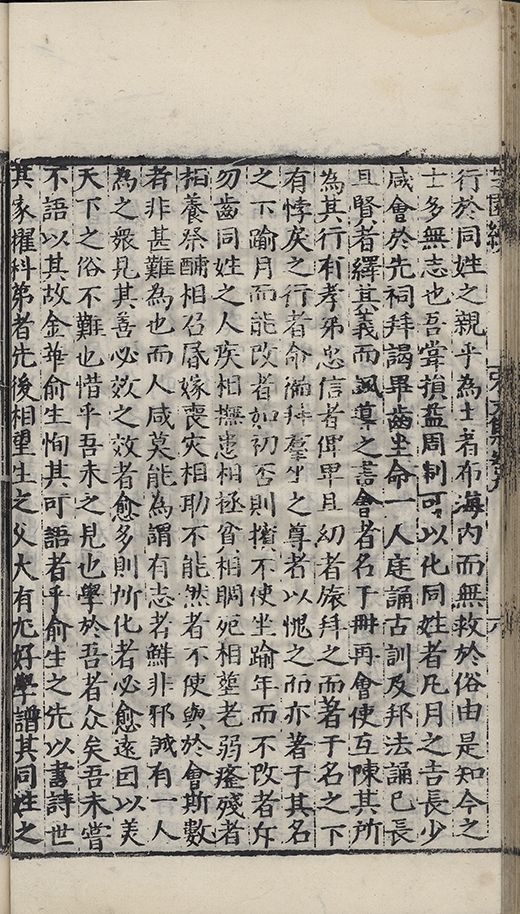 行於同姓之親乎為士者布海内而無救於俗由是知今之
士多無志也吾甞損益周制可以化同姓者凡月之吉長少
咸會於先祠拜謁畢齒坐命一人庭誦古訓及邦法誦已長
且賢者繹其義而諷導之書會者名于冊再會使互陳其所
為其行有孝弟忠信者俾卑且幼者旅拜之而著于名之下
有悖戾之行者命徧拜羣坐之尊者以愧之而亦著于其名
之下踰月而能改者如初否則擯不使坐踰年而不改者斥
勿齒同姓之人疾相撫患相拯貧相賙死相塟老弱癃殘者
相養祭酺相召昏嫁喪灾相助不能然者不使與於會斯數
者非甚難為也而人咸莫能為謂有志者鮮非邪誠有一人
為之衆見其善必效之效者愈多則所化者必愈遠因以美
天下之俗不難也惜乎吾未之見也學於吾者众矣吾未嘗
不語以其故金華俞生恂其可語者乎俞生之先以書詩世
其家擢科第者先後相望生之父大有尤好學譜其同姓之